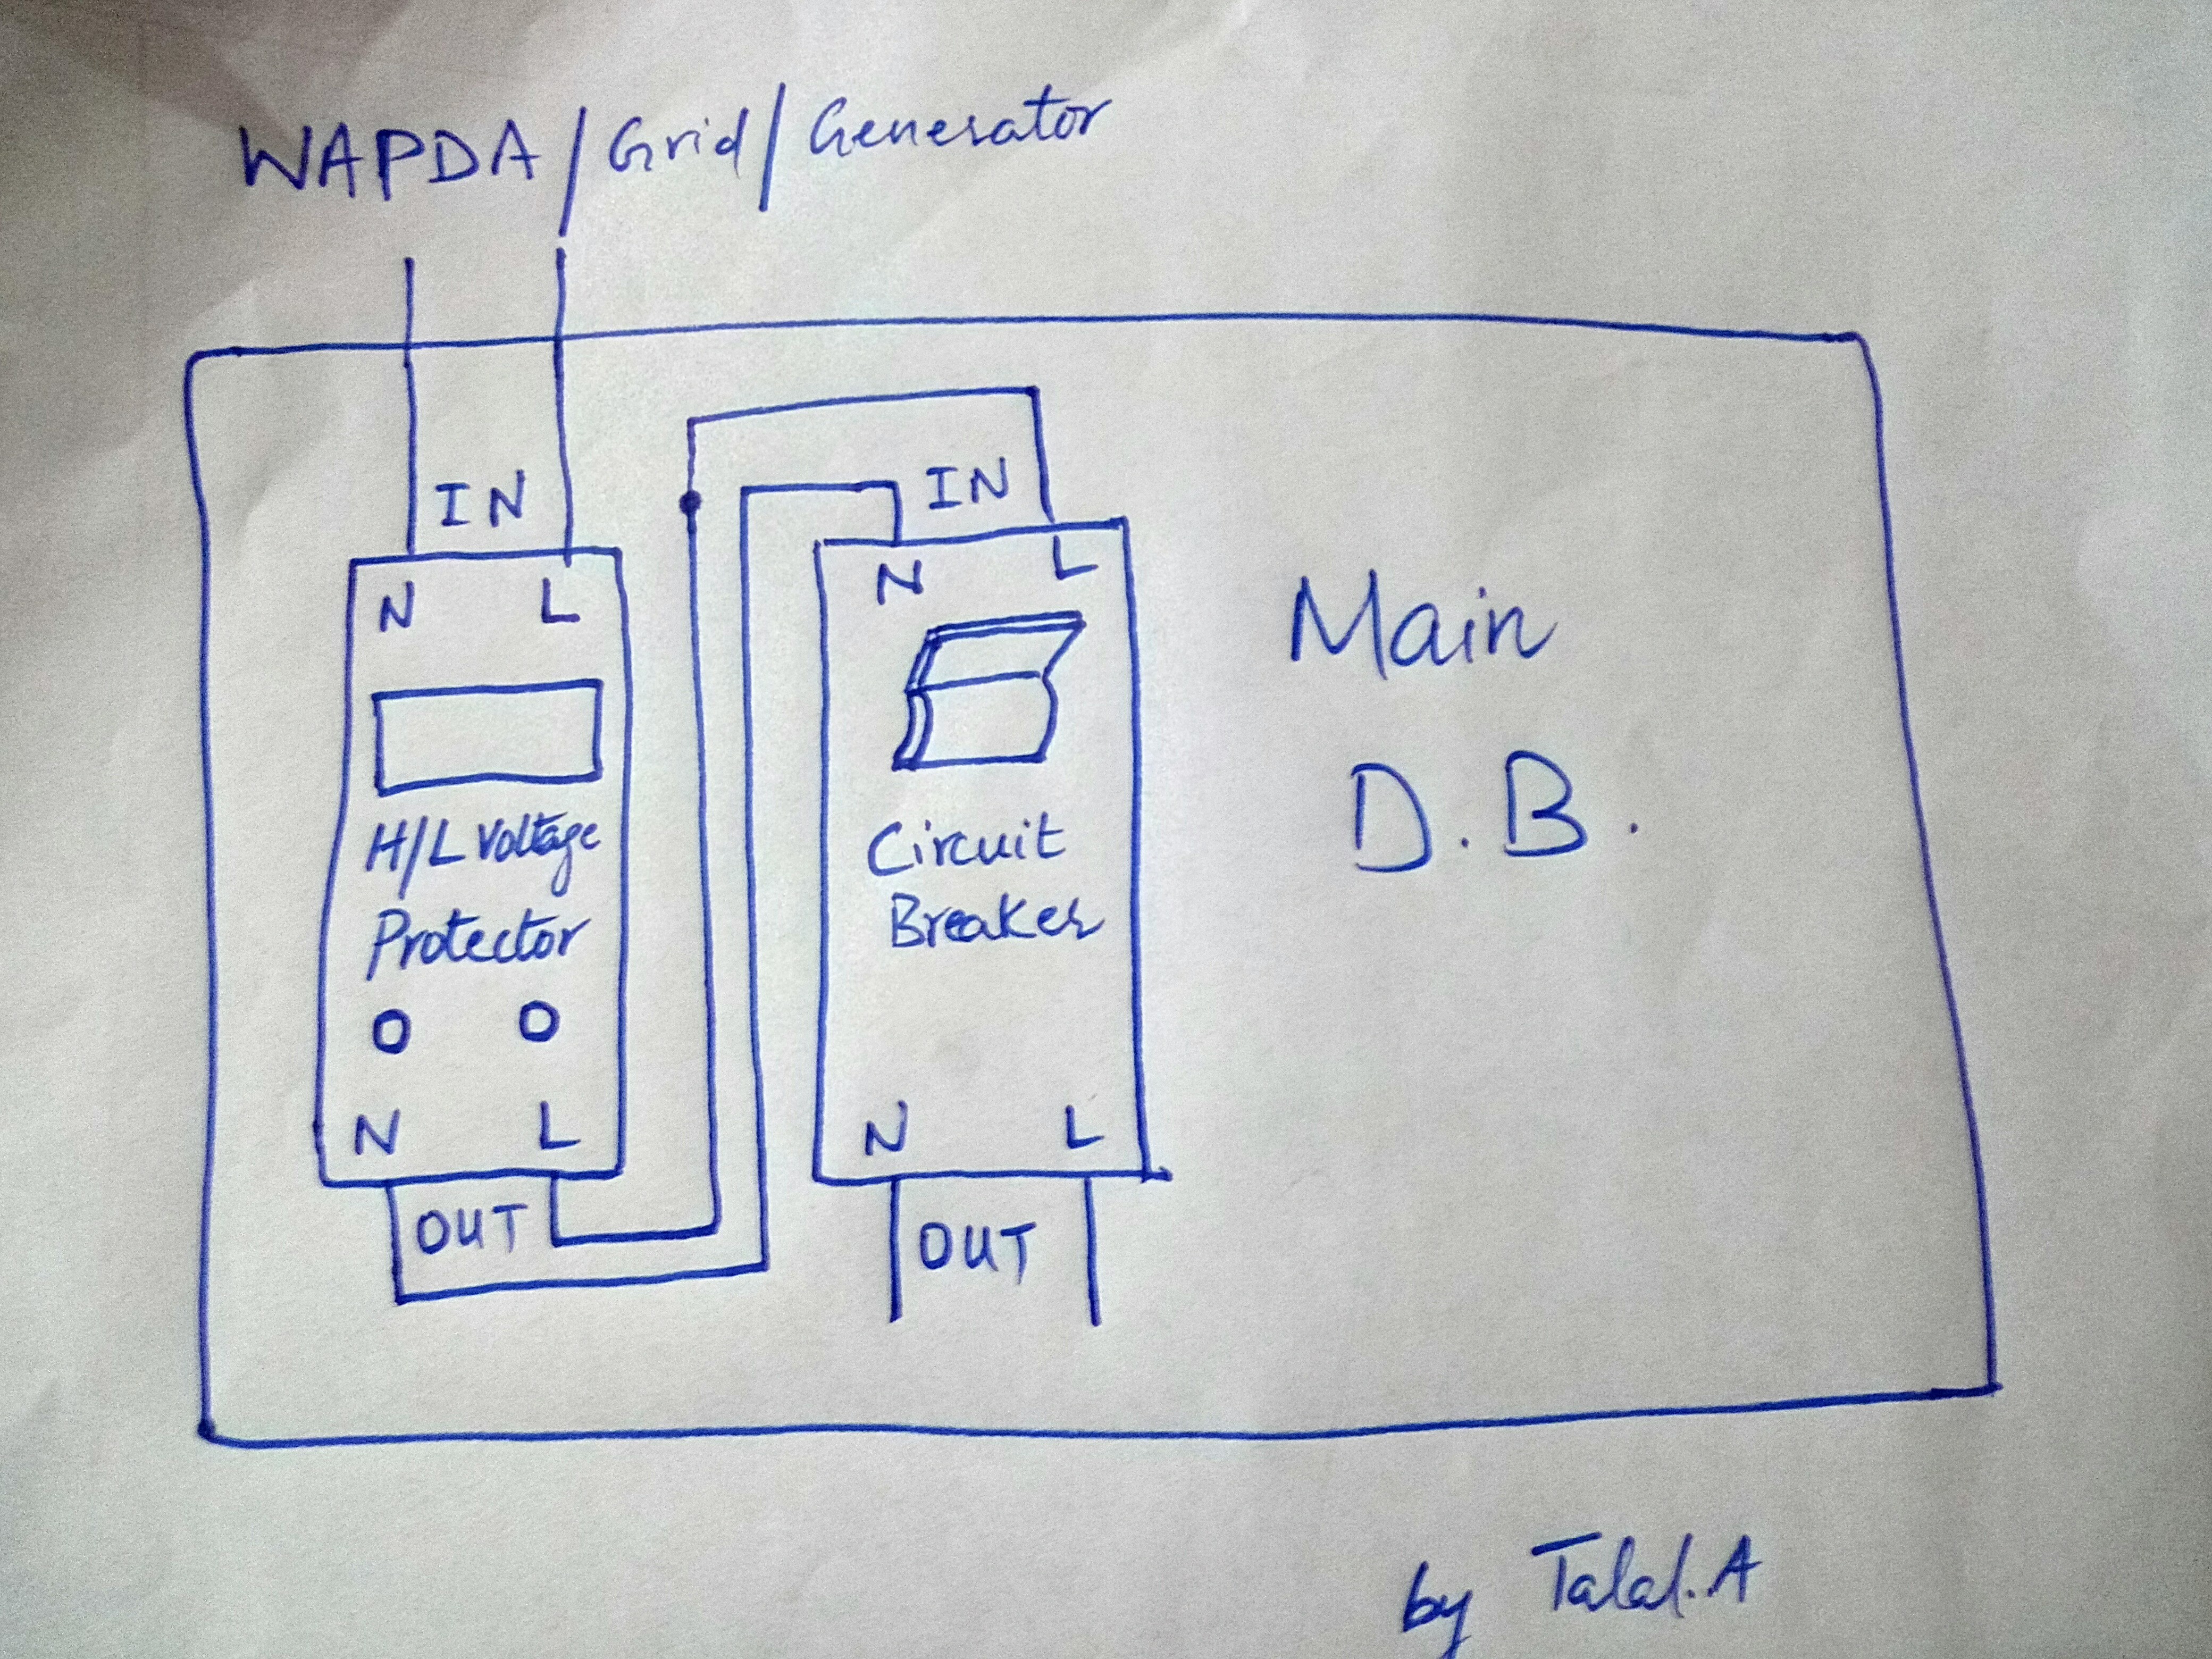 WAPDA/Grid/Generator
IN
IN
N L
N L
H/L Voltage
Protector
O O
N L
OUT
Circuit
Breaker
N L
OUT
Main
D.B.
by Talal.A